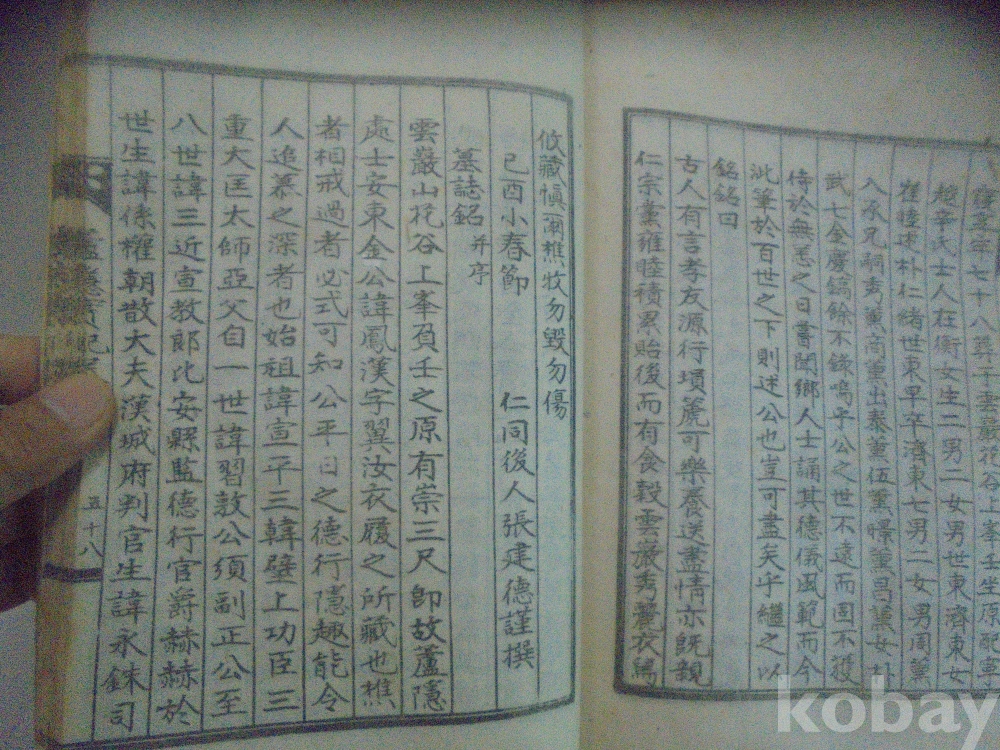 享年七十八葬于雲嚴花谷上峯壬坐原配宁
越辛氏士人在衡女生二男二女男世東濟東女
崔睦述朴仁緖世東早卒濟東七男二女男周薰
入承兄嗣秀薰高薰出泰薰伍薰憬薰昌薰女朴
武七金慶鎬餘不錄嗚乎公之世不遠而固不獲
侍於無恙之日嘗聞鄉人士誦其德儀風範而今
泚筆於百世之下則述公也豈可盡矣乎繼之以
銘銘曰
古人有言孝友源行塤篪可樂養送盡情亦旣親
仁宗黨雍睦積累貽後而有食穀雲嚴秀麗衣舃
攸藏愼爾樵牧勿毀勿傷
己酉小春節 仁同後人張建德謹撰
墓誌銘 并序
雲巖山花谷上峯負壬之原有崇三尺卽故蘆隱
處士安東金公諱鳳漢字翼汝衣履之所藏也樵
者相戒過者必式可知公平日之德行隱趣能令
人追慕之深者也始祖諱宣平三韓壁上功臣三
重大匡太師亞父自一世諱習敦公須副正公至
八世諱三近宣敎郎比安縣監德行官爵赫赫於
世生諱係權朝散大夫漢城府判官生諱永銖司
五十八
kobay